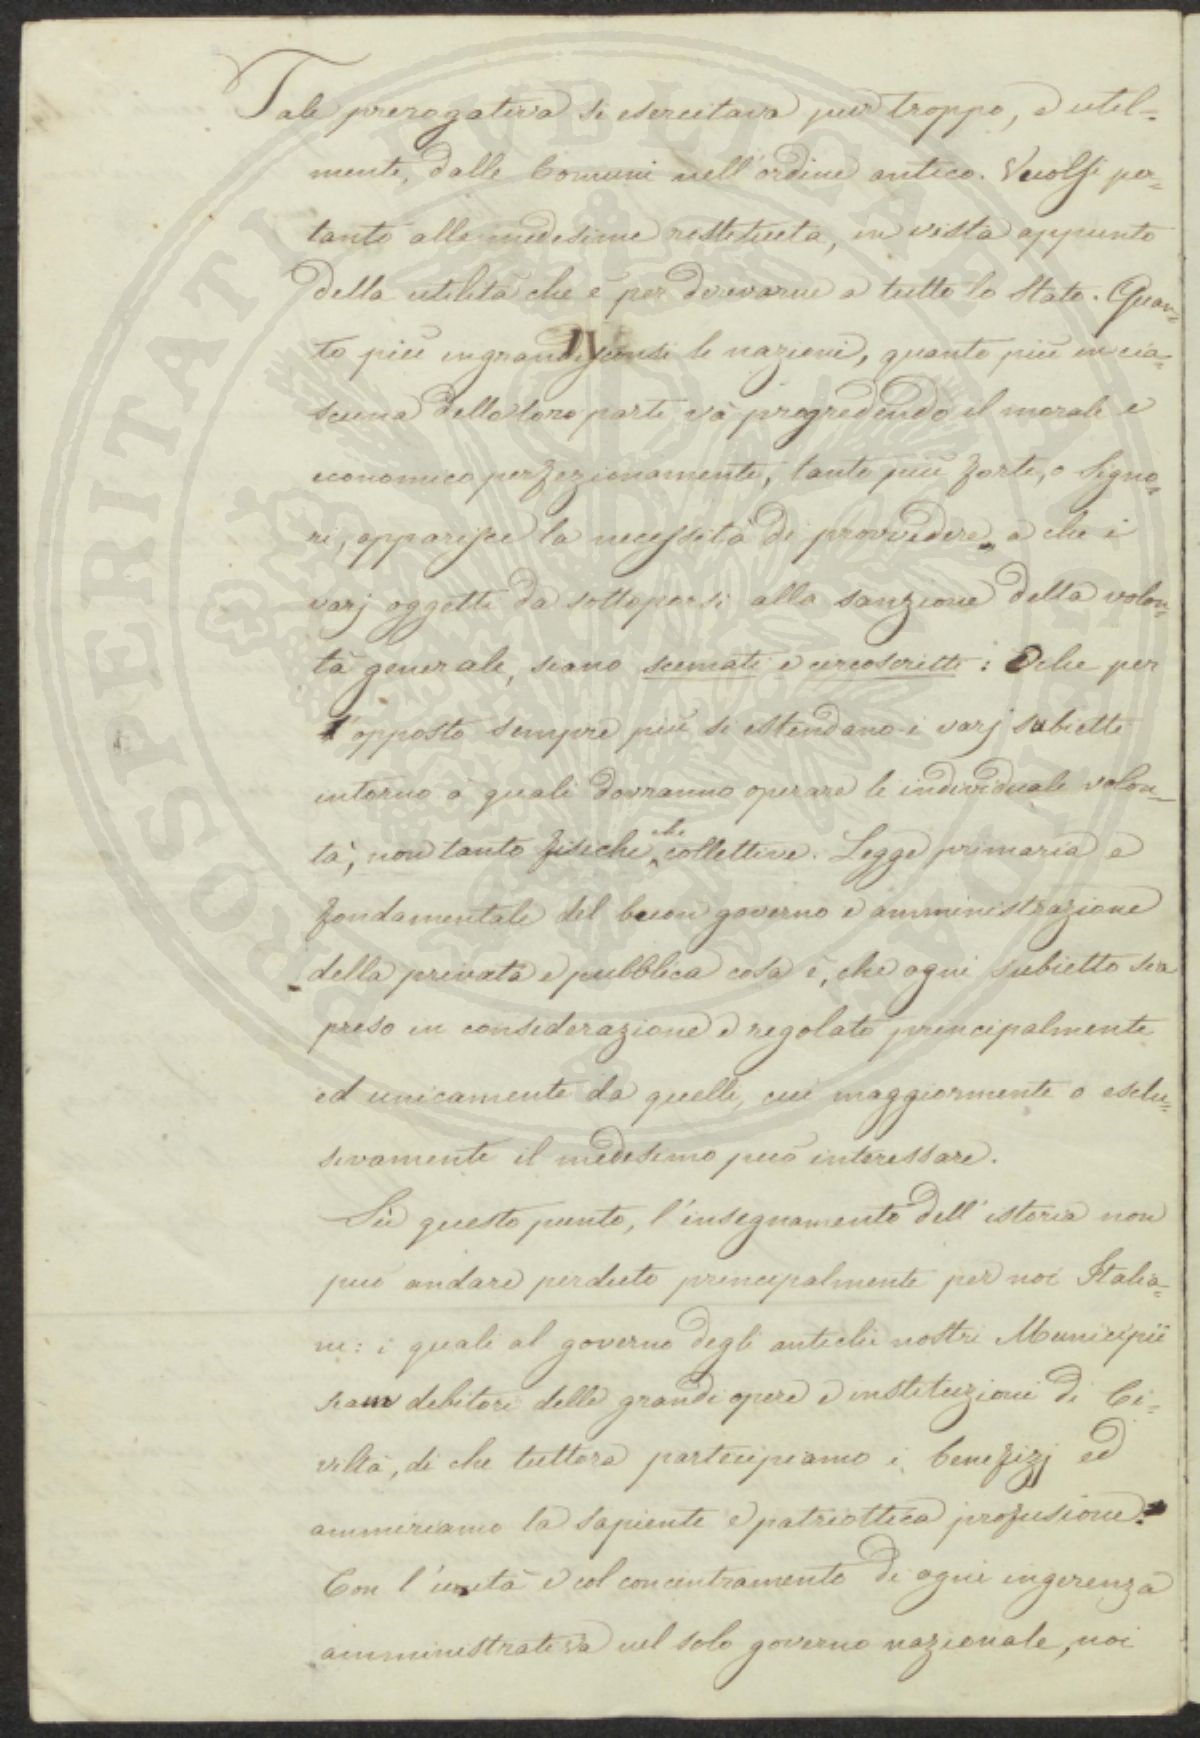 Tale prerogativa si esercitava pur troppo, e util=
mente, dalle Comuni nell'ordine antico. Vuolsi per=
tanto alle medesime restituita, in vista appunto
della utilità che è per derivarne a tutto lo Stato. Quan=
to più ingrandisconsi le nazioni, quanto più in cia=
scuna delle loro parti và progredendo il morale e
economico perfezionamento, tanto più forte, o Signo=
ri, apparisce la necessità di provvedere, a che i
varj oggetti da sottoporsi alla sanzione della volon=
tà generale, siano scemati e circoscritti: E che per
l'opposto sempre più si estendano i varj subietti
intorno a quali dovranno operare le individuale volon=
tà, non tanto fisiche che collettive. Legge primaria e
fondamentale del buon governo e amministrazione
della privata e pubblica cosa è, che ogni subietto sia
preso in considerazione e regolato principalmente
ed unicamente da quelli, cui maggiormente o esclu=
sivamente il medesimo può interessare.
Sù questo punto, l'insegnamento dell'istoria non
può andare perduto principalmente per noi Italia=
ni: i quali al governo degli antichi nostri Municipii
siam debitori delle grandi opere e instituzioni di Ci=
viltà, di che tuttora partecipiamo i benefizj ed
ammiriamo la sapiente e patriottica profusione.
Con l'unità e col concentramento di ogni ingerenza
amministrativa nel solo governo nazionale, noi
PROSPERITATI PVBLICAE